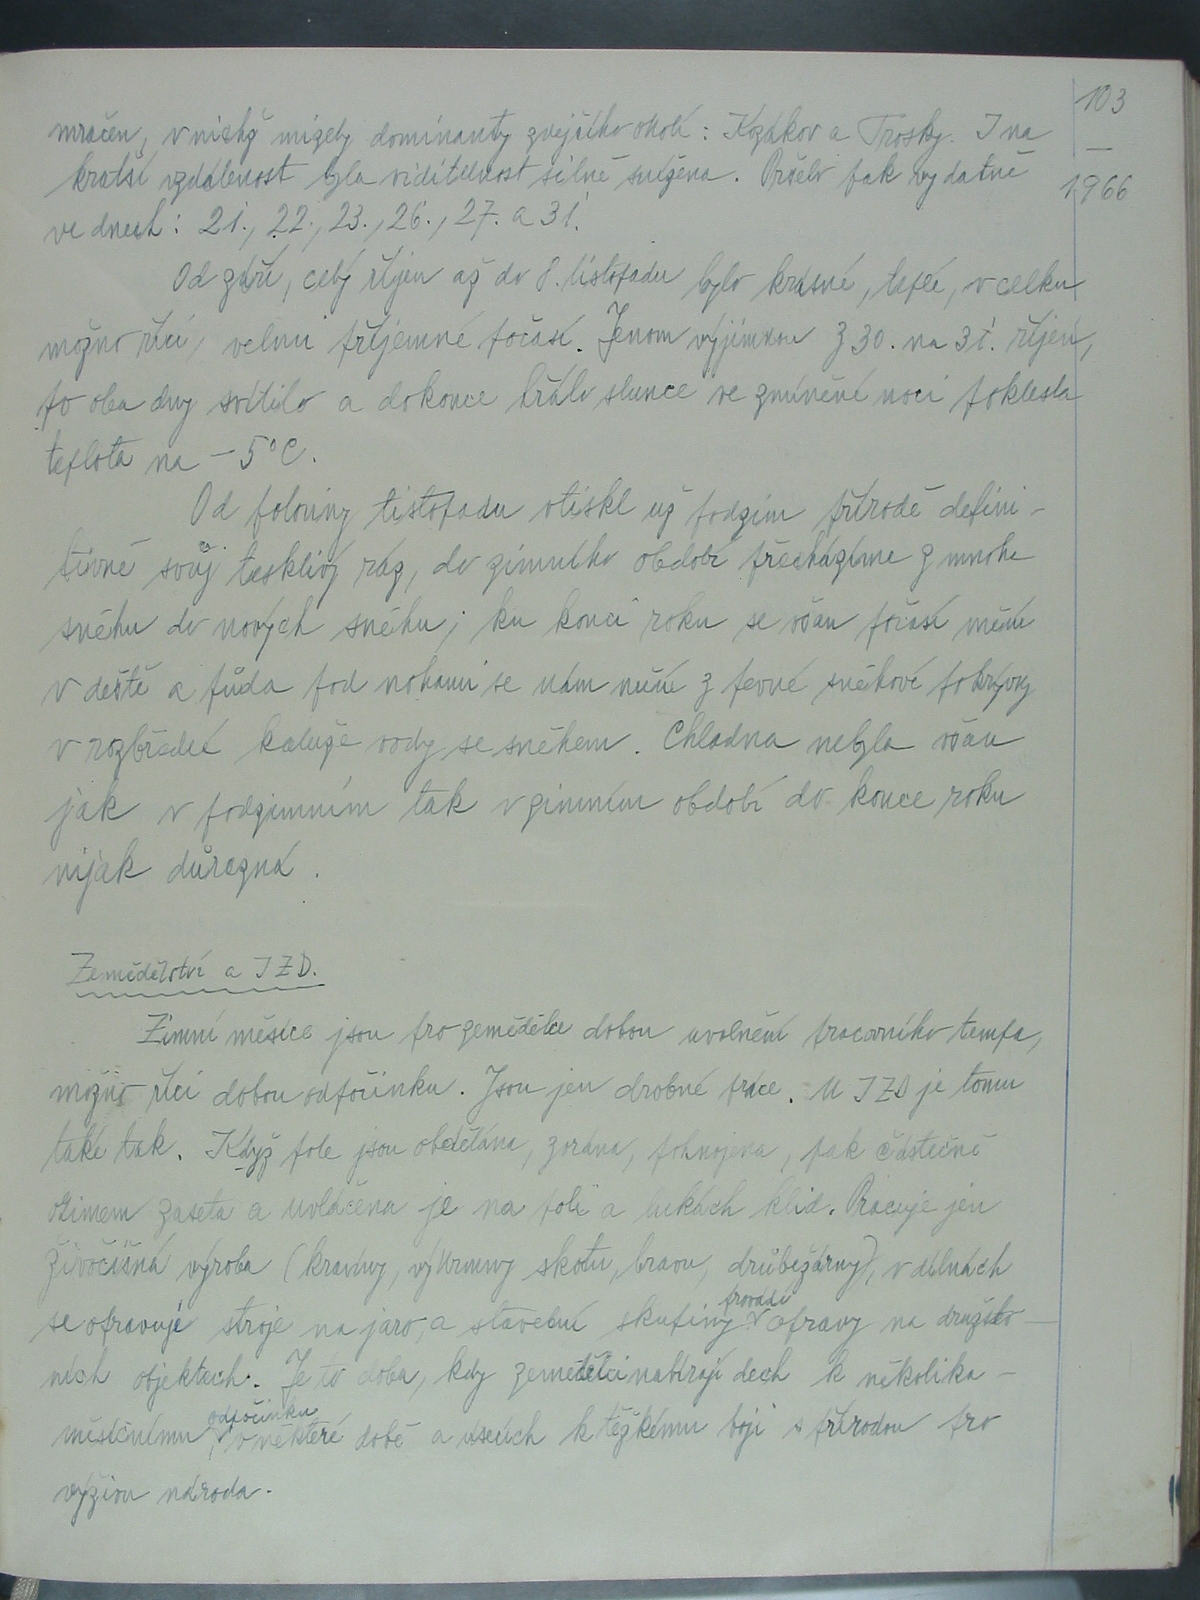 103
1966
mračen, v nichž mizely dominanty zdejšího okolí: Kozákov a Trosky. I na
kratší vzdálenost byla viditelnost silně snížena. Pršelo pak vydatně
ve dnech: 21., 22., 23., 26., 27. a 31.
Od září, celý říjen až do 8. listopadu bylo krásné, teplé, v celku
možno říci, velmi příjemné počasí. Jenom výjimkou z 30. na 31. říjen,
po oba dny svítilo a dokonce hřálo slunce ve zmíněné noci poklesla
teplota na – 5°C.
Od poloviny listopadu vtiskl už podzim přírodě defini-
tivně svůj tesklivý ráz, do zimního období přecházíme z mnoha
sněhu do nových sněhu; ku konci roku se však počasí mění
v deště a půda pod nohami se nám mění z pevné sněhové pokrývky
v rozbředlé kaluže vody se sněhem. Chladna nebyla však
jak v podzimním tak v zimním období do konce roku
nijak důrazná.
Zemědělství a JZD.
Zimní měsíce jsou pro zemědělce dobou uvolnění pracovního tempa,
možno říci dobou odpočinku. Jsou jen drobné práce. U JZD je tomu
také tak. Když pole jsou obdělána, zorána, pohnojena, pak částečně
ozimem zaseta a uvláčena je na poli a lukách klid. Pracuje jen
živočišná výroba (kravíny, výkrmny skotu, bravu, drůbežárny), v dílnách
se opravují stroje na jaro, a stavební skupiny provádí opravy na družstev-
ních objektech. Je to doba, kdy zemědělci nabírají dech k několika-
měsíčnímu, odpočinku v některé době a úsecích k těžkému boji s přírodou pro
výživu národa.